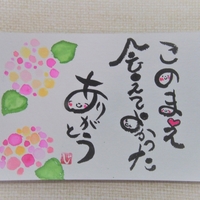 このまえ
会えてよかった
ありがとう